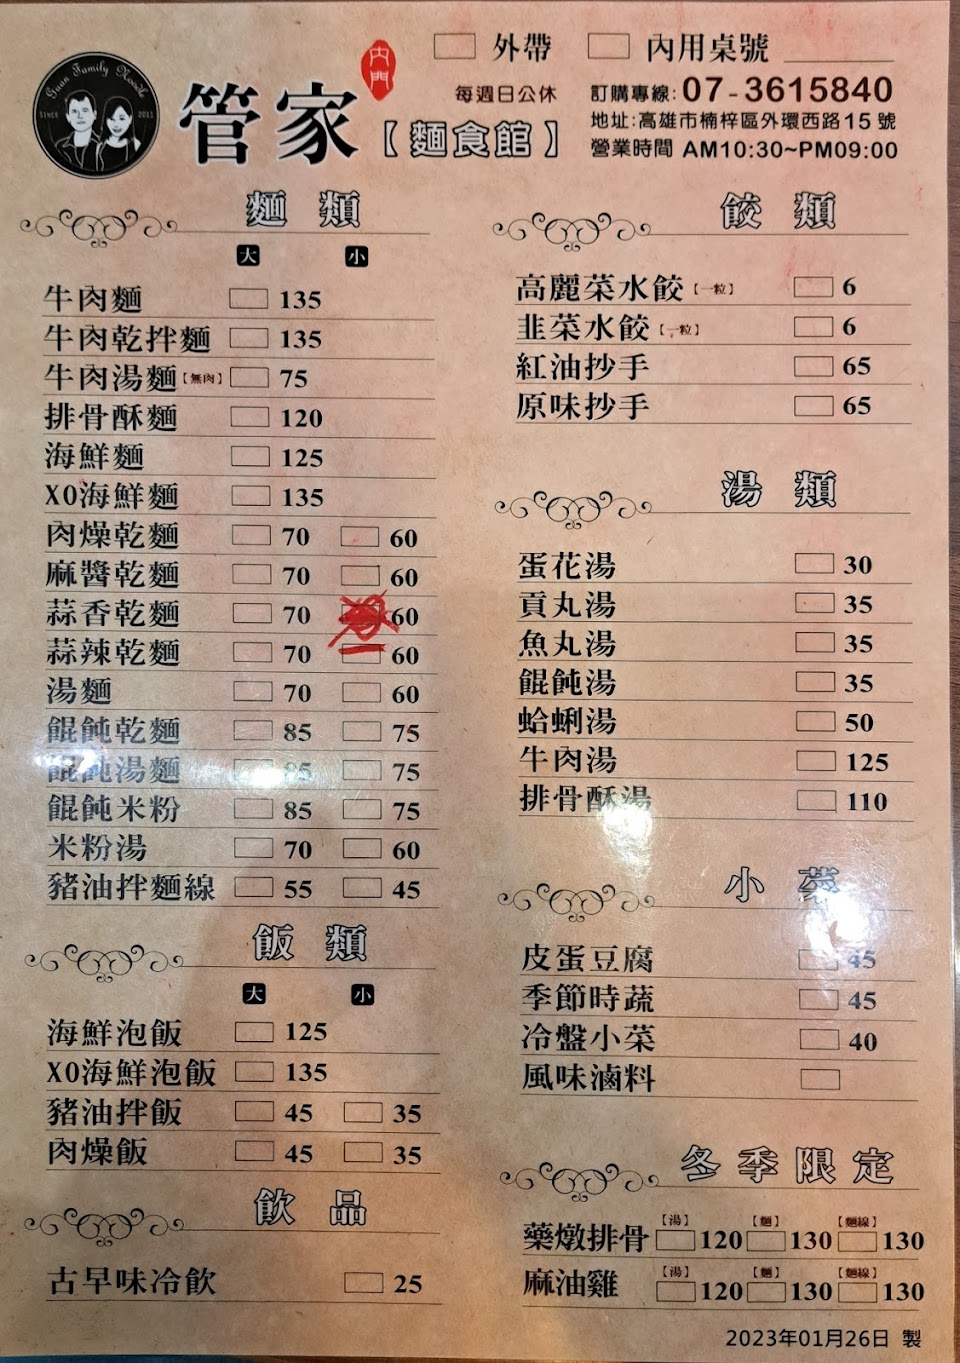 Guan Family Noodle
SINCE 2011
管家
內門
【麵食館】
外帶 內用桌號
每週日公休
訂購專線:07-3615840
地址:高雄市楠梓區外環西路15號
營業時間 AM10:30~PM09:00
麵類
大 小
牛肉麵 135
牛肉乾拌麵 135
牛肉湯麵【無肉】 75
排骨酥麵 120
海鮮麵 125
XO海鮮麵 135
肉燥乾麵 70 60
麻醬乾麵 70 60
蒜香乾麵 70 60
蒜辣乾麵 70 60
湯麵 70 60
餛飩乾麵 85 75
餛飩湯麵 85 75
餛飩米粉 85 75
米粉湯 70 60
豬油拌麵線 55 45
飯類
大 小
海鮮泡飯 125
XO海鮮泡飯 135
豬油拌飯 45 35
肉燥飯 45 35
飲品
古早味冷飲 25
餃類
高麗菜水餃【一粒】 6
韭菜水餃【一粒】 6
紅油抄手 65
原味抄手 65
湯類
蛋花湯 30
貢丸湯 35
魚丸湯 35
餛飩湯 35
蛤蜊湯 50
牛肉湯 125
排骨酥湯 110
小菜
皮蛋豆腐 45
季節時蔬 45
冷盤小菜 40
風味滷料
冬季限定
【湯】 【麵】 【麵線】
藥燉排骨 120 130 130
【湯】 【麵】 【麵線】
麻油雞 120 130 130
2023年01月26日 製